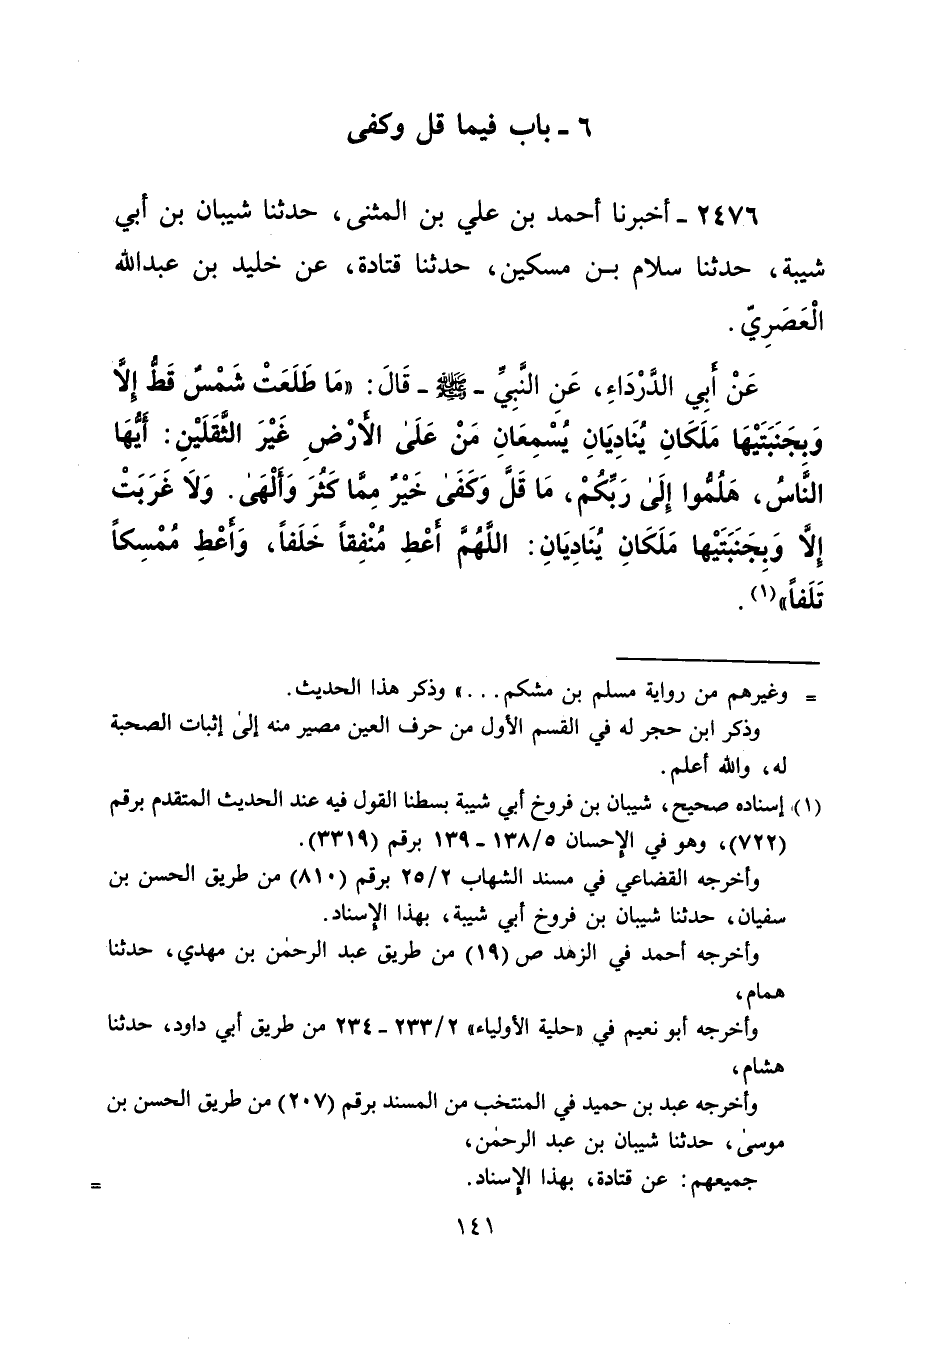 ٦ ـ باب فيما قل وكفى
٢٤٧٦ ـ أخبرنا أحمد بن علي بن المثنى، حدثنا شيبان بن أبي
شيبة، حدثنا سلام بـن مسكين، حدثنا قتادة، عن خليد بن عبدالله
الْعَصَرِيّ.
عَنْ أَبِي الدَّرْدَاءِ، عَنِ النَّبِيِّ ـ ﷺ ـ قَالَ: «مَا طَلَعَتْ شَمْسٌ قَطُّ إِلَّا
وَبِجَنَبَتَيْهَا مَلَكَانِ يُنَادِيَانِ يُسْمِعَانِ مَنْ عَلَىٰ الأَرْضِ غَيْرَ الثَّقَلَيْنِ: أَيُّهَا
النَّاسُ، هَلُمُّوا إِلَىٰ رَبِّكُمْ، مَا قَلَّ وَكَفَىٰ خَيْرٌ مِمَّا كَثُرَ وَأَلْهَىٰ. وَلَا غَرَبَتْ
إِلَّا وَبِجَنَبَتَيْها مَلَكَانِ يُنَادِيَانِ: اللَّهُمَّ أَعْطِ مُنْفِقاً خَلَفاً، وَأَعْطِ مُمْسِكاً
تَلَفاً»(١).
= وغيرهم من رواية مسلم بن مشكم...» وذكر هذا الحديث.
وذكر ابن حجر له في القسم الأول من حرف العين مصير منه إلىٰ إثبات الصحبة
له، والله أعلم.
(١) إسناده صحيح، شيبان بن فروخ أبي شيبة بسطنا القول فيه عند الحديث المتقدم برقم
(٧٢٢)، وهو في الإحسان ١٣٨/٥ ـ ١٣٩ برقم (٣٣١٩).
وأخرجه القضاعي في مسند الشهاب ٢٥/٢ برقم (٨١٠) من طريق الحسن بن
سفيان، حدثنا شيبان بن فروخ أبي شيبة، بهذا الإسناد.
وأخرجه أحمد في الزهد ص (١٩) من طريق عبد الرحمٰن بن مهدي، حدثنا
همام،
وأخرجه أبو نعيم في «حلية الأولياء» ٢٣٣/٢ ـ ٢٣٤ من طريق أبي داود، حدثنا
هشام،
وأخرجه عبد بن حميد في المنتخب من المسند برقم (٢٠٧) من طريق الحسن بن
موسىٰ، حدثنا شيبان بن عبد الرحمٰن،
جميعهم: عن قتادة، بهذا الإسناد. =
١٤١